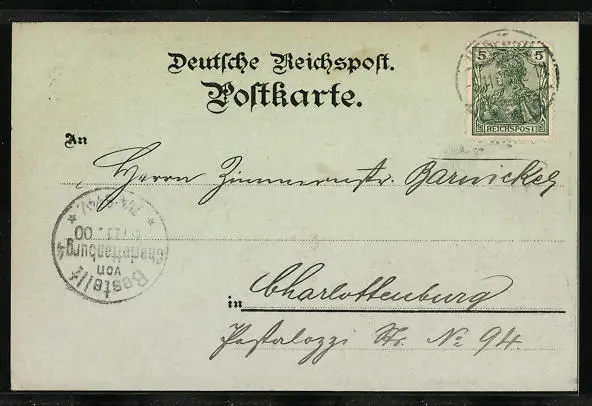 Deutsche Reichspost.
Postkarte.
5 5
REICHSPOST
An
Herrn Zimmermstr. Barnickel
Bestellt
von
Charlottenburg 4
00
in Charlottenburg
Pestalozzi Str. No 94.